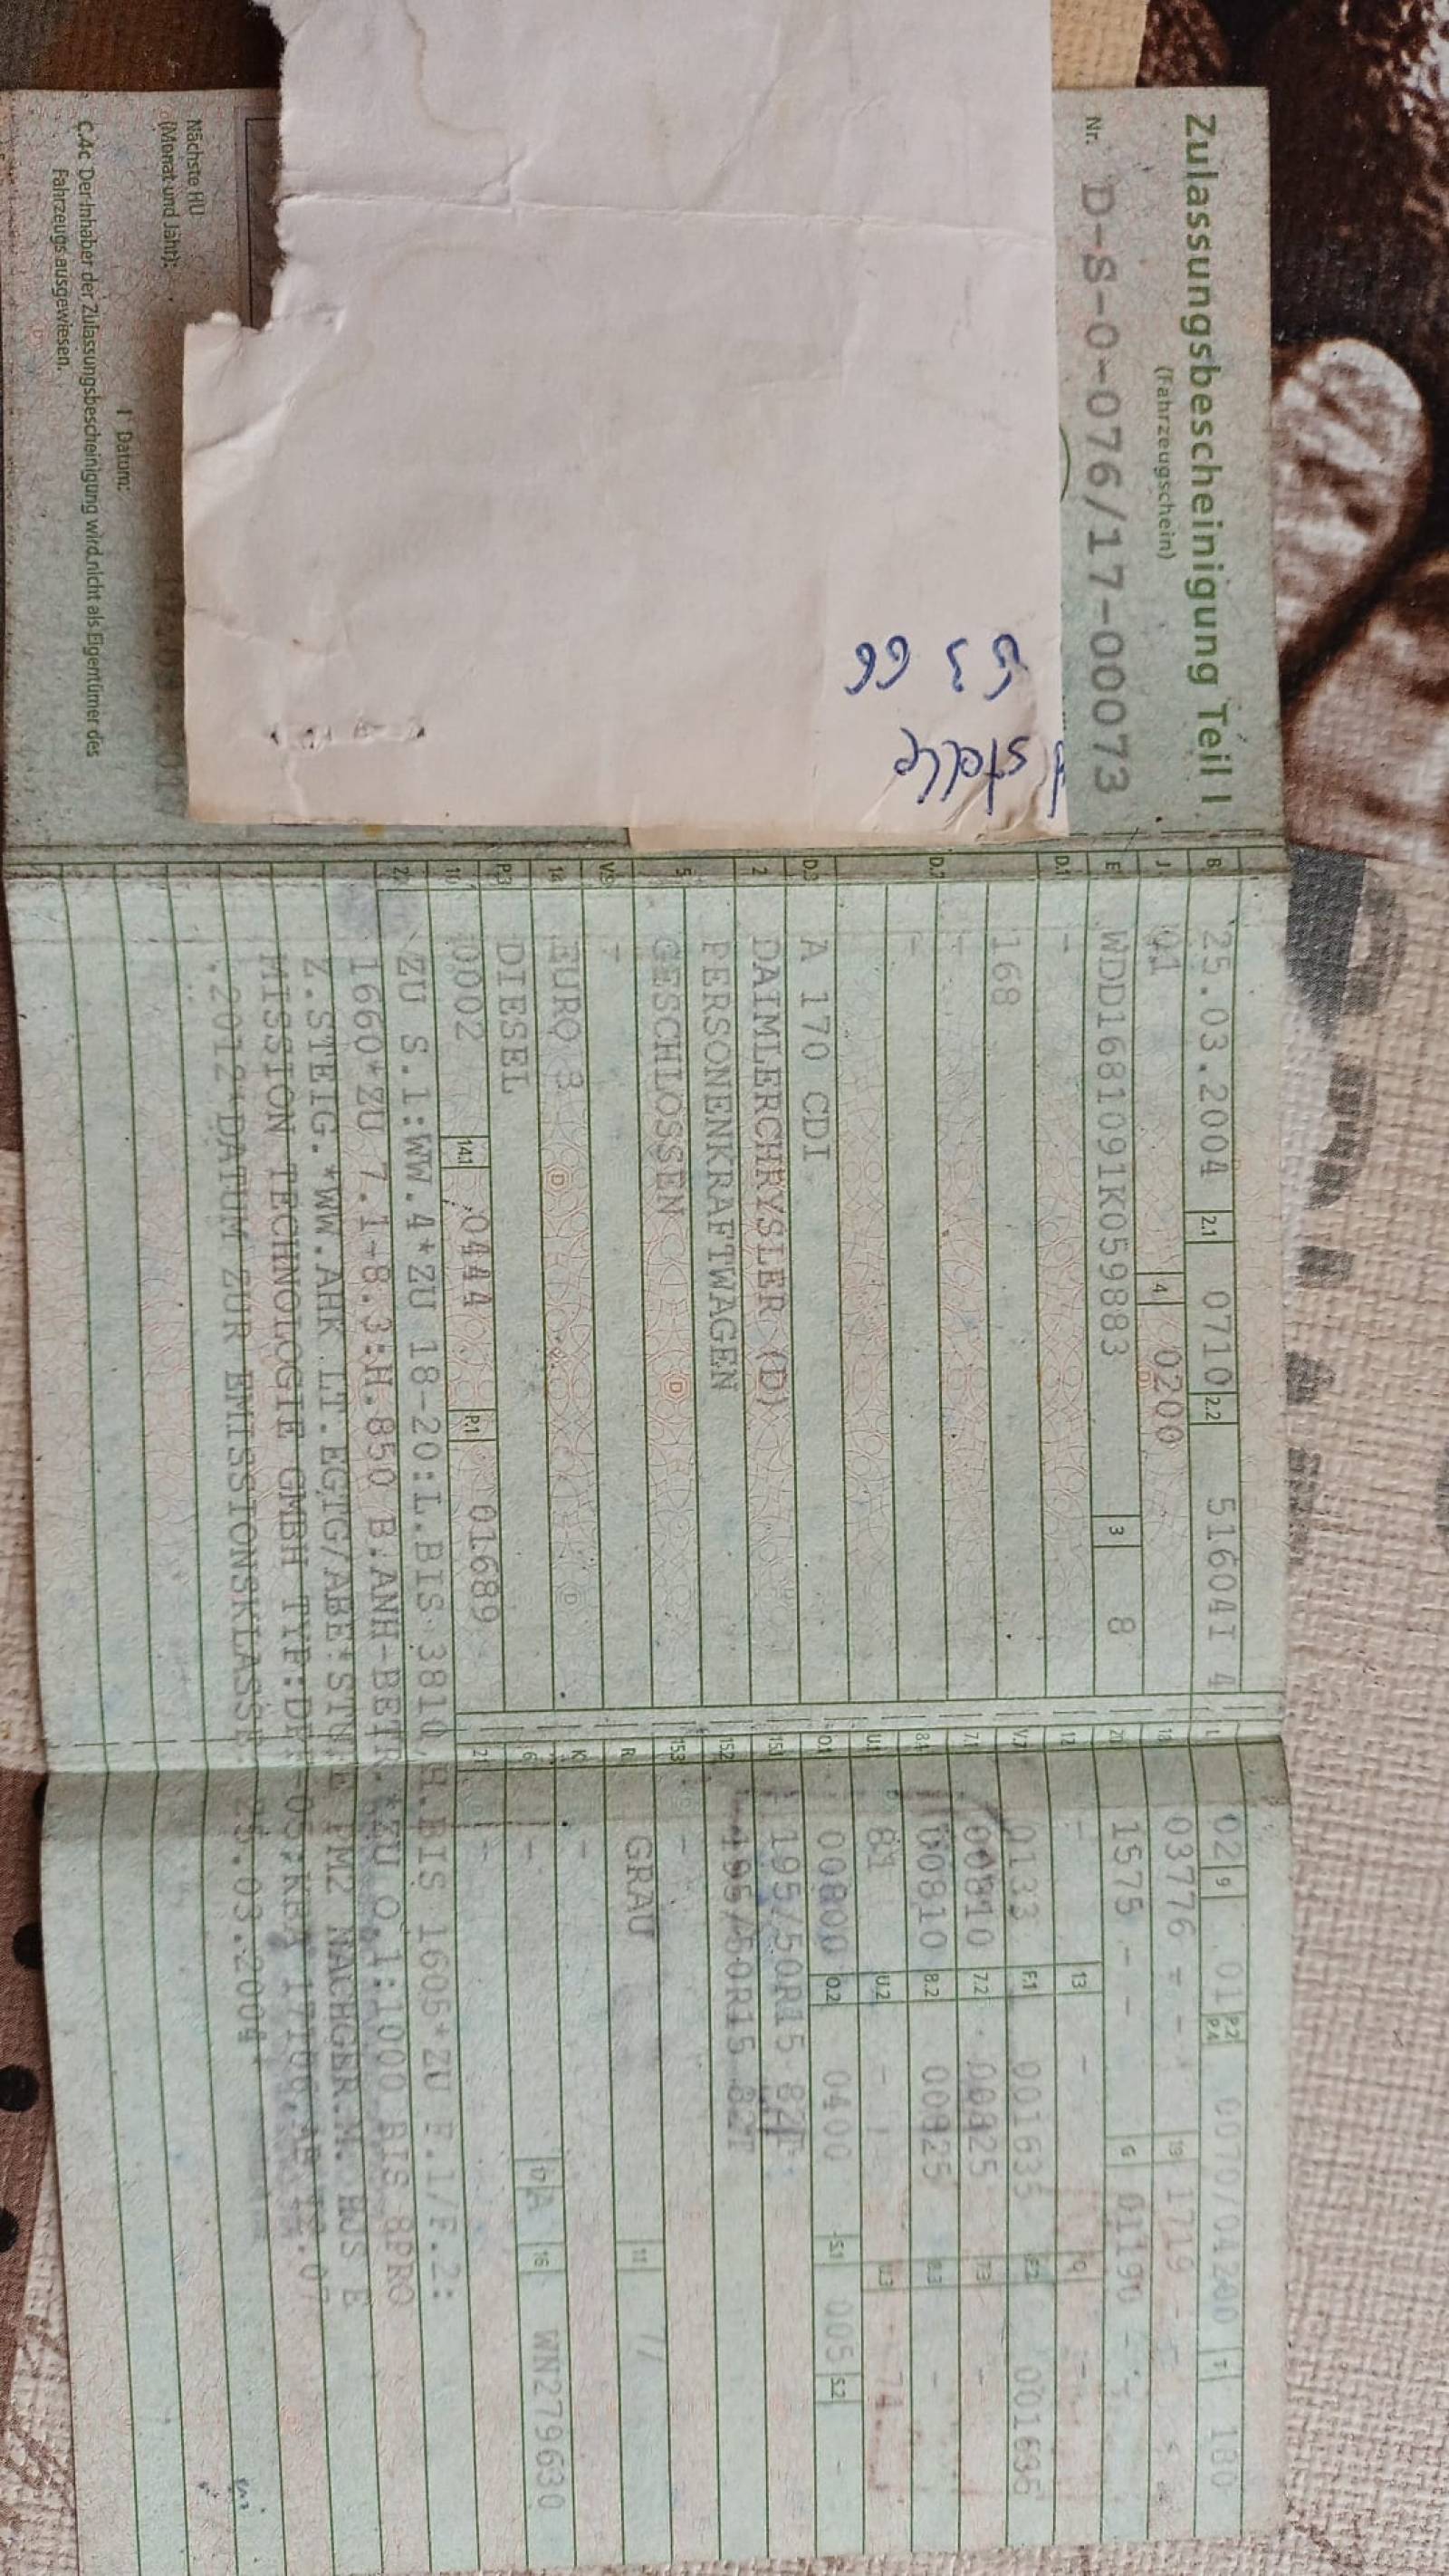 Zulassungsbescheinigung Teil I
(Fahrzeugschein)
Nr. D-S-0-076/17-00073
stelle
Nächste HU
(Monat und Jahr):
I Datum:
C.4c Der Inhaber der Zulassungsbescheinigung wird nicht als Eigentümer des
Fahrzeugs ausgewiesen.
B 25.03.2004 2.1 0710 2.2 51604I 4
J 01 4 0200
E WDD1681091K059883 3 8
D.1 -
168
D.2 -
-
D.3 A 170 CDI
2 DAIMLERCHRYSLER (D)
PERSONENKRAFTWAGEN
5 GESCHLOSSEN
V.9 -
14 EURO 3
P.3 DIESEL
10 0002 14.1 0444 P.1 01689
22 ZU S.1:WW.4*ZU 18-20:L.BIS 3810,H.BIS 1605*ZU F.1/F.2:
1660*ZU 7.1-8.3:H.850 B.ANH-BETR.*ZU O.1:1000 BIS 8PRO
Z.STEIG.*WW.AHK LT.EGTG/ABE*STUFE PM2 NACHGER.M. HJS E
MISSION TECHNOLOGIE GMBH TYP: KBA
.2012*DATUM ZUR EMISSIONSKLASSE 25.03.2004*
L 02 9 01 P.2 P.4 0070/04200 T 180
18 03776 - - 19 1719 -
20 1575 - - G 01190 - -
12 - 13 - Q -
V.7 0133 F.1 001635 F.2 001635
7.1 00810 7.2 00825 7.3 -
8.1 00810 8.2 00825 8.3 -
U.1 81 U.2 - U.3 74
O.1 00800 O.2 0400 S.1 005 S.2 -
15.1 195/50R15 82T
15.2 195/50R15 82T
15.3 -
R GRAU 11 7/
K -
6 - 17 A 16 WN279630
21 -